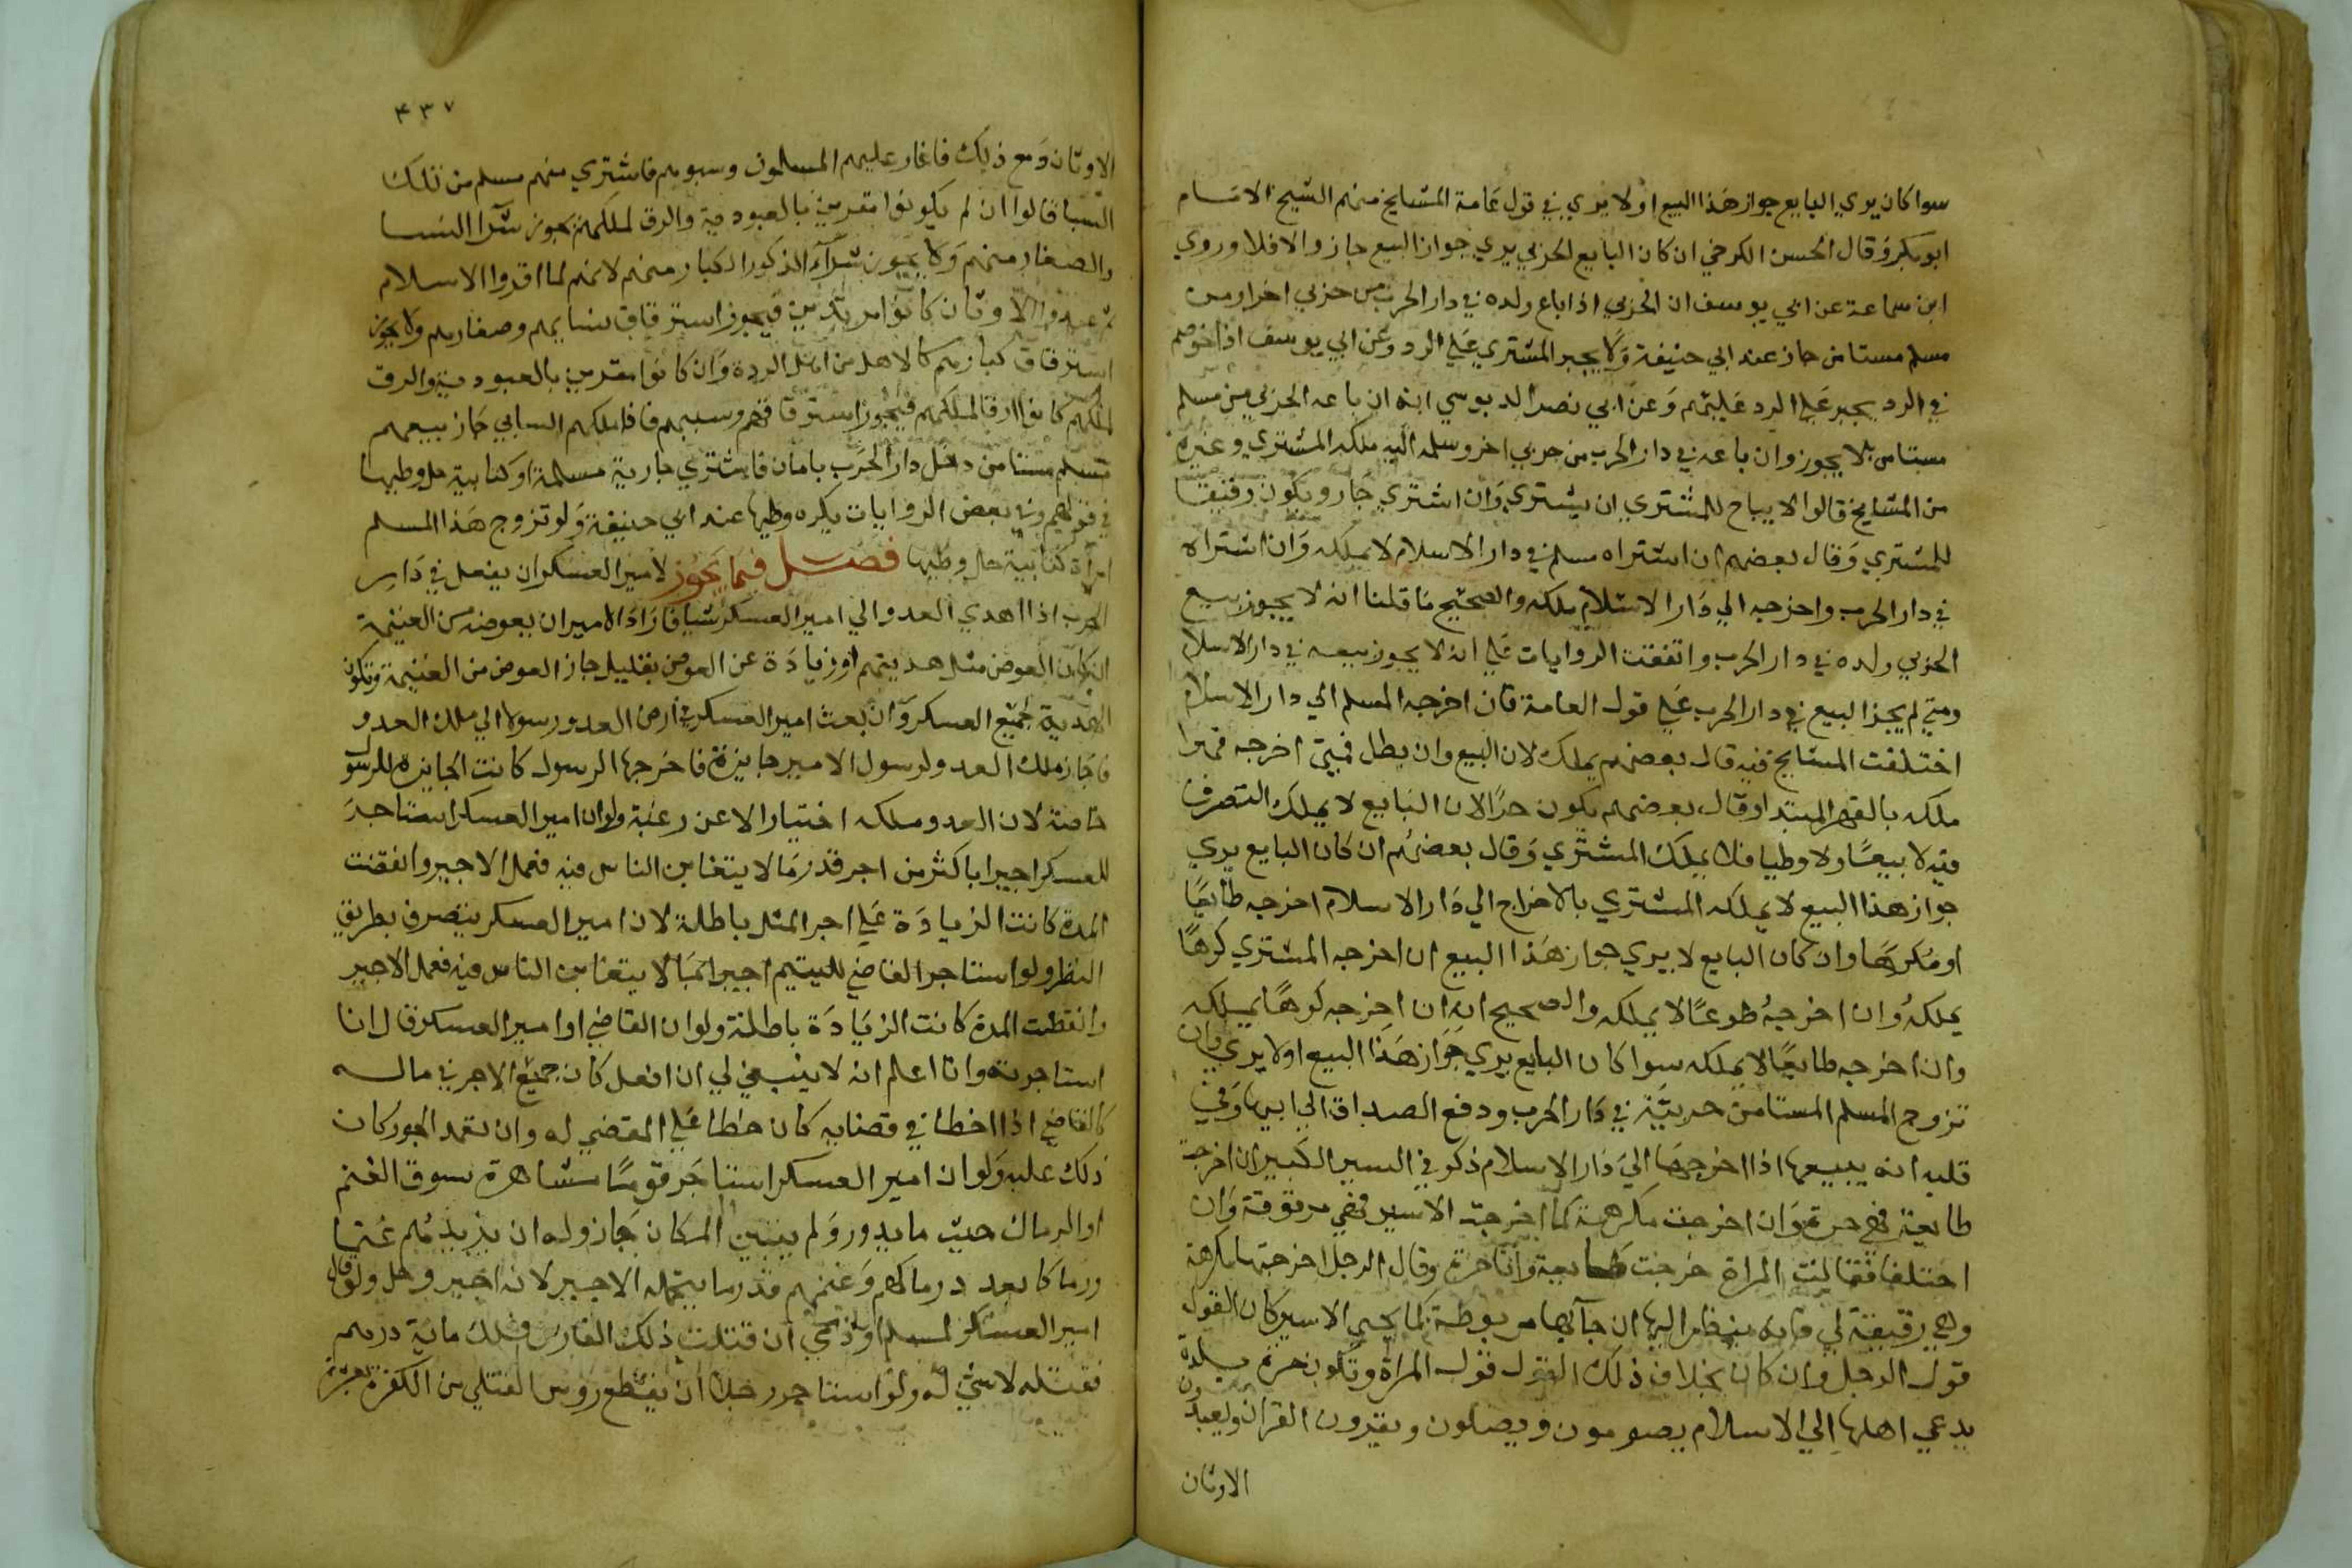 سوا كان يري البايع جواز هذا البيع او لا يري في قول عامة المشايخ منهم الشيخ الامام
ابو بكر وقال الحسن الكرخي ان كان البايع الحربي يري جواز البيع جاز والا فلا وروي
ابن سماعة عن ابي يوسف ان الحربي اذا باع ولده في دار الحرب من حربي اخر او من
مسلم مستامن جاز عند ابي حنيفة ولا يجبر المشتري علي الرد وعن ابي يوسف اذا خوصم
في الرد يجبر علي الرد عليهم وعن ابي نصر الدبوسي انه ان باعه الحربي من مسلم
مستامن لا يجوز وان باعه في دار الحرب من حربي اخر وسلمه اليه ملكه المشتري وغيره
من المشايخ قالوا لا يباح للمشتري ان يشتري وان اشتري جاز ويكون رقيقا
للمشتري وقال بعضهم ان اشتراه مسلم في دار الاسلام لا يملكه وان اشتراه
في دار الحرب واخرجه الي دار الاسلام ملكه والصحيح ما قلنا انه لا يجوز بيع
الحربي ولده في دار الحرب واتفقت الروايات علي انه لا يجوز بيعه في دار الاسلام
ومتي لم يجز البيع في دار الحرب علي قول العامة فان اخرجه المسلم الي دار الاسلام
اختلفت المشايخ فيه قال بعضهم يملك لان البيع وان بطل فمتي اخرجه قهرا
ملكه بالقهر المبتدا وقال بعضهم يكون حرا لان البايع لا يملك التصرف
فيه لا بيعا ولا وطيا فلا يملك المشتري وقال بعضهم ان كان البايع يري
جواز هذا البيع لا يملكه المشتري بالاخراج الي دار الاسلام اخرجه طايعا
او مكرها وان كان البايع لا يري جواز هذا البيع ان اخرجه المشتري كرها
يملكه وان اخرجه طوعا لا يملكه والصحيح انه ان اخرجه كرها يملكه
وان اخرجه طايعا لا يملكه سوا كان البايع يري جواز هذا البيع او لا يري وان
تزوج المسلم المستامن حربية في دار الحرب ودفع الصداق الي ابيها وفي
قلبه انه يبيعها اذا اخرجها الي دار الاسلام ذكر في السير الكبير ان اخرجت
طايعة فهي حرة وان اخرجت مكرهة كما اخرجت الاسير فهي مرقوقة وان
اختلفا فقالت المراة خرجت طايعة وانا حرة وقال الرجل اخرجتها مكرهة
وهي رقيقة لي فانه ينظر اليها ان جآ بها مربوطة كما يجي الاسير كان القول
قول الرجل وان كان بخلاف ذلك القول قول المراة وتكون حرة بلدة
يدعي اهلها الي الاسلام يصومون ويصلون ويقرون القران ويعبدون
الاوثان
٤٣٧
الاوثان ومع ذلك فاغار عليهم المسلمون وسبوهم فاشتري منهم مسلم من تلك
السبايا قالوا ان لم يكونوا مقرين بالعبودية والرق لملكهم يجوز شرا النسا
والصغار منهم ولا يجوز شرآ الذكور الكبار منهم لانهم لما اقروا الاسلام
ثم عبدوا الاوثان كانوا مرتدين فيجوز استرقاق نسايهم وصغارهم ولا يجوز
استرقاق كبارهم كالاهل من اهل الردة وان كانوا مقرين بالعبودية والرق
لملكهم كانوا ارقا لملكهم فيجوز استرقاقهم وسبيهم فاذا ملكهم السابي جاز بيعهم
مسلم مستامن دخل دار الحرب بامان فاشتري جارية مسلمة او كتابية حل وطيها
في قولهم وفي بعض الروايات يكره وطيها عند ابي حنيفة ولو تزوج هذا المسلم
امرأة كتابية حل وطيها فصل فيما يجوز لامير العسكر ان يفعل في دار
الحرب اذا اهدي العدو الي امير العسكر شيا فاراد الامير ان يعوضه من الغنيمة
ان كان العوض مثل هديتهم او زيادة عن العوض بقليل جاز العوض من الغنيمة وتكون
الهدية لجميع العسكر وان بعث امير العسكر في ارض العدو رسولا الي ملك العدو
فاجاز ملك العدو لرسول الامير جايزة فاخرجها الرسول كانت الجايزة للرسول
خاصة لان العدو ملكه اختيارا لا عن رغبة ولو ان امير العسكر استاجر
للعسكر اجيرا باكثر من اجر قدر ما لا يتغابن الناس فيه فعمل الاجير وانقضت
المدة كانت الزيادة علي اجر المثل باطلة لان امير العسكر يتصرف بطريق
النظر ولو استاجر القاضي لليتيم اجيرا بما لا يتغابن الناس فيه فعمل الاجير
وانقضت المدة كانت الزيادة باطلة ولو ان القاضي او امير العسكر قال انا
استاجرته وانا اعلم انه لا ينبغي لي ان افعل كان جميع الاجر في ماله
كالقاضي اذا اخطا في قضايه كان خطا علي المقضي له وان تعمد الجور كان
ذلك عليه ولو ان امير العسكر استاجر قوما مشاهرة بسوق الغنم
او الرماك حيث ما يدور ولم يبين المكان جاز وله ان يزيدهم غنما
ورماكا بعد رماكهم وغنمهم قدر ما يتحمله الاجير لانه اجير وحل ولو قال
امير العسكر لمسلم او ذمي ان قتلت ذلك الفارس فلك ماية درهم
فقتله لا شي له ولو استاجر رجلا ان يقطع روس القتلي من الكفرة بعشرة